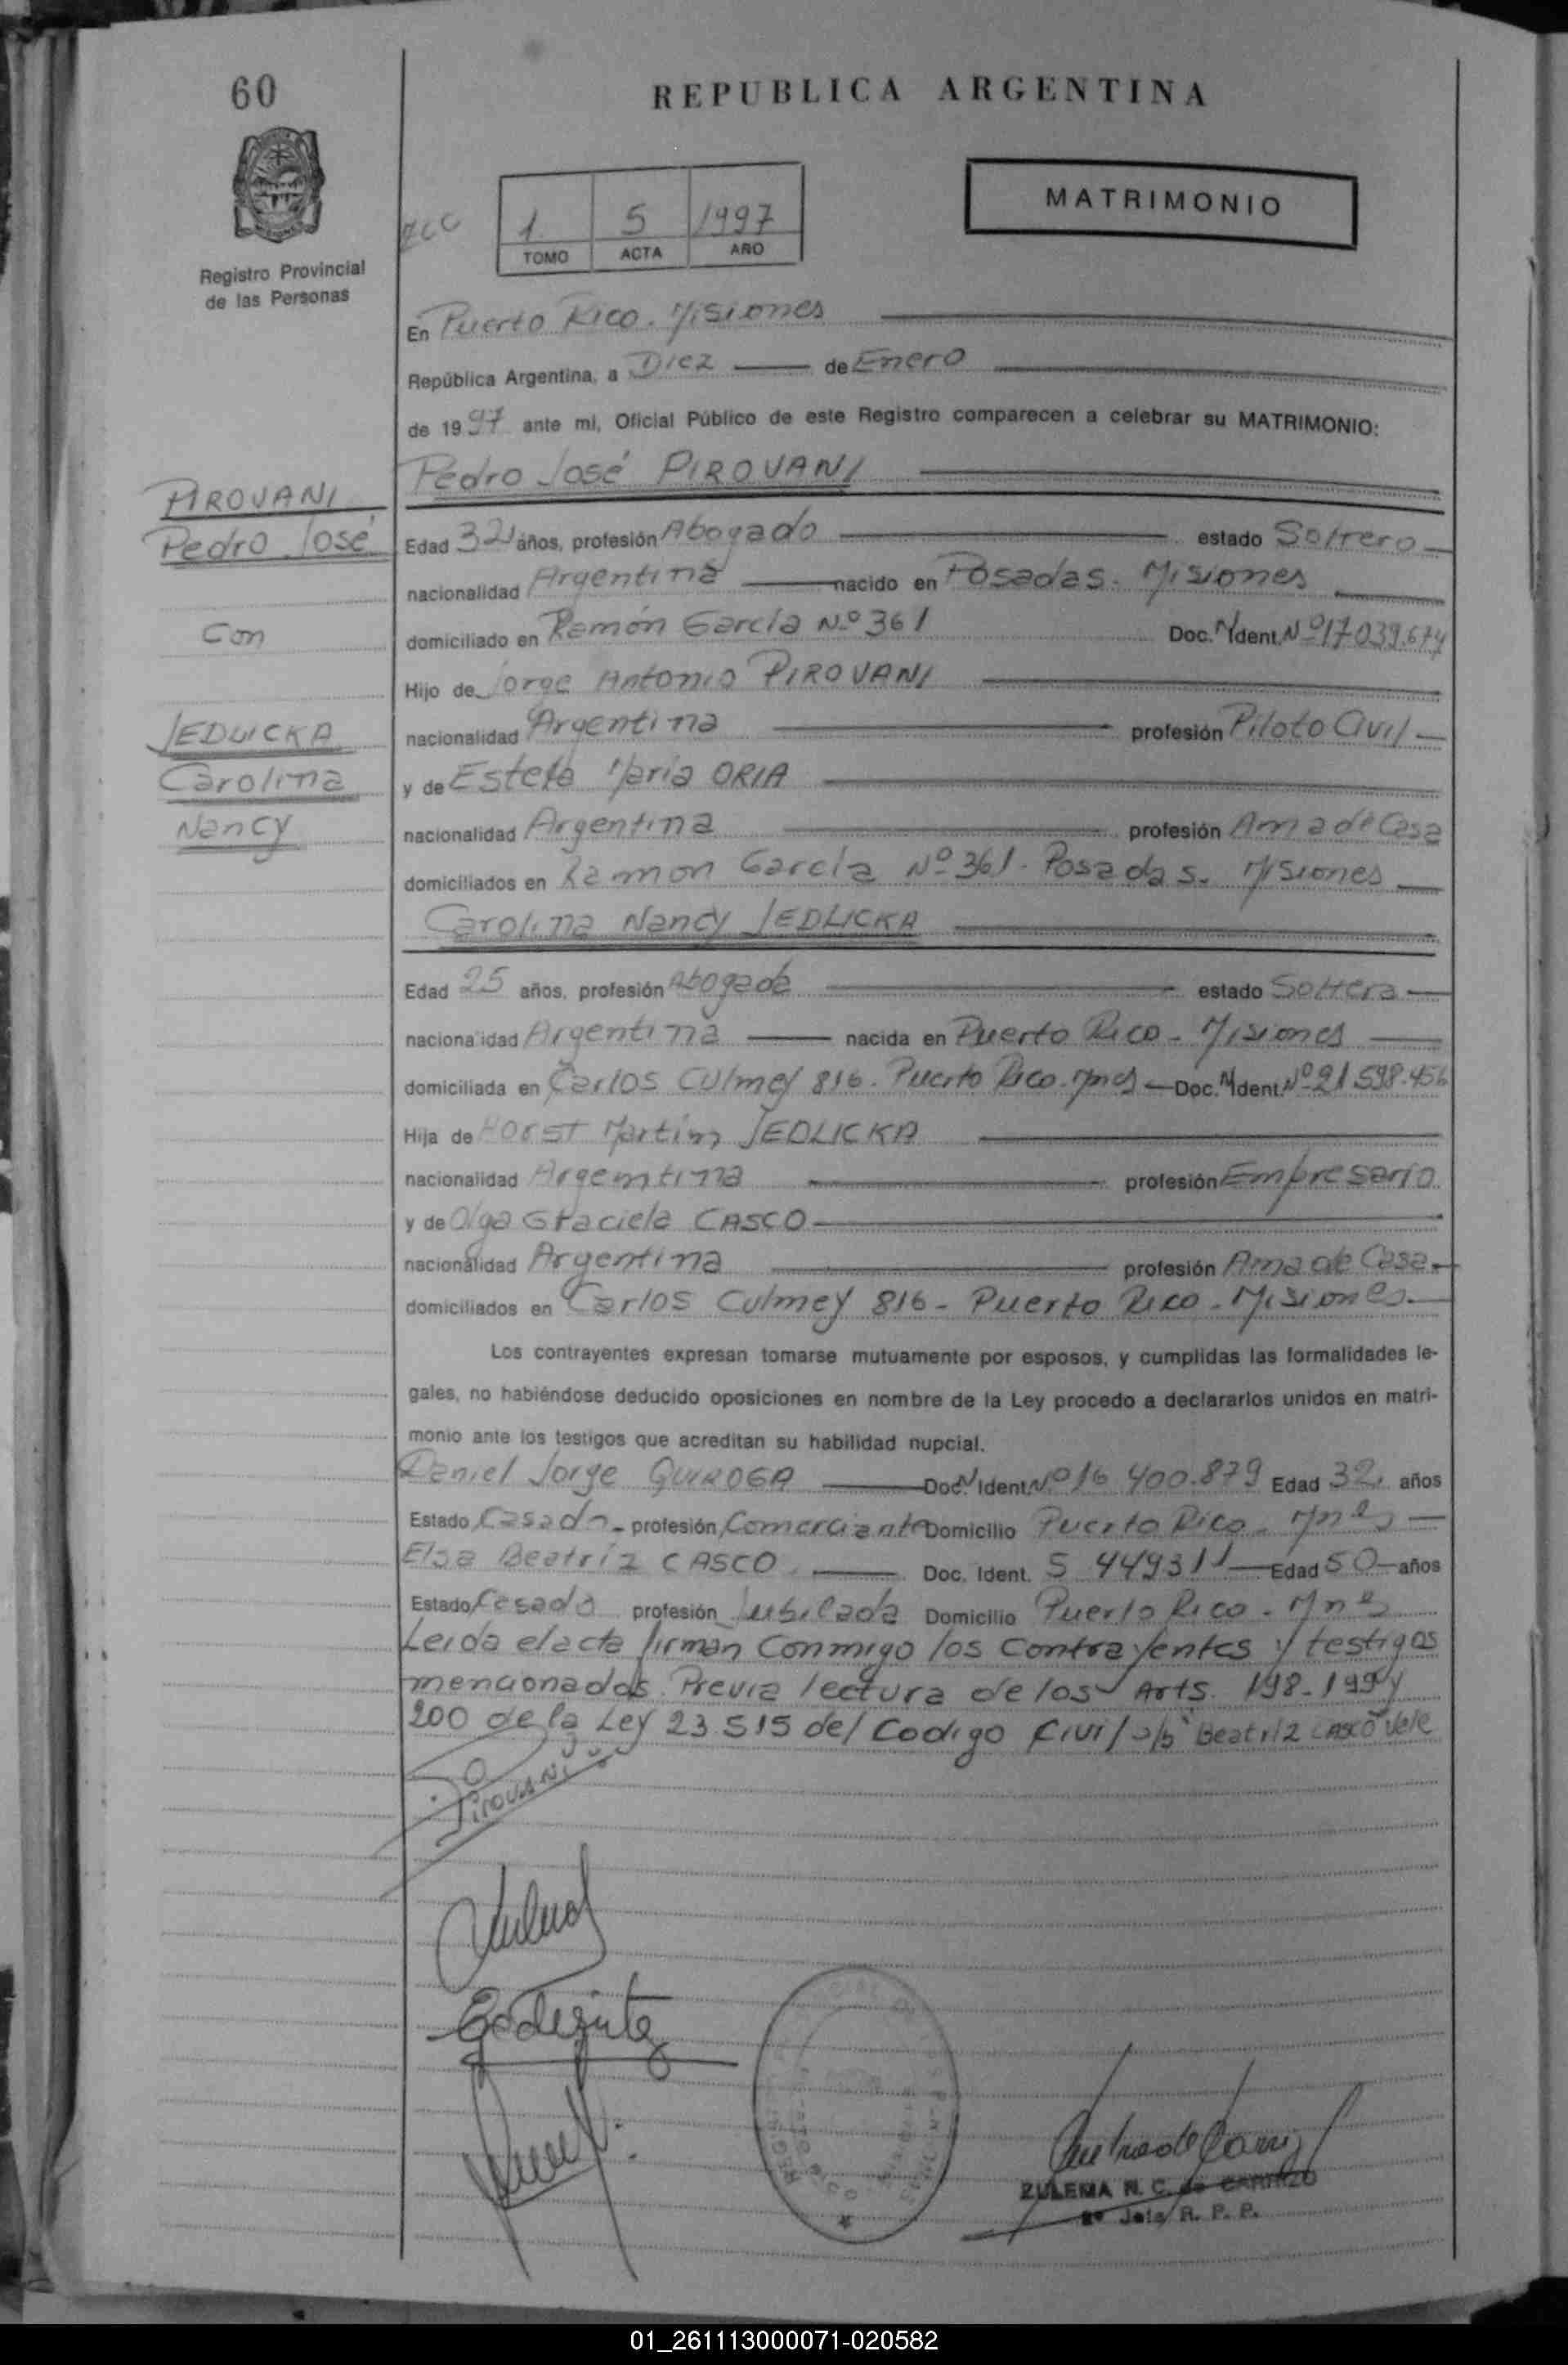 60
REPUBLICA ARGENTINA
MATRIMONIO
1 5 1997
TOMO ACTA AÑO
Registro Provincial
de las Personas
En Puerto Rico. Misiones
República Argentina, a Diez de Enero
de 1997 ante mi, Oficial Público de este Registro comparecen a celebrar su MATRIMONIO:
Pedro José PIROVANI
PIROVANI
Pedro José
Con
JEDLICKA
Carolina
Nancy
Edad 32 años, profesión Abogado estado Soltero
nacionalidad Argentina nacido en Posadas. Misiones
domiciliado en Ramón García Nº 361 Doc. N Ident. Nº 17.039.674
Hijo de Jorge Antonio PIROVANI
nacionalidad Argentina profesión Piloto Civil
y de Estela Maria ORIA
nacionalidad Argentina profesión Ama de Casa
domiciliados en Ramon García Nº 361. Posadas. Misiones
Carolina Nancy JEDLICKA
Edad 25 años, profesión Abogada estado Soltera
nacionalidad Argentina nacida en Puerto Rico - Misiones
domiciliada en Carlos Culmey 816. Puerto Rico. Mnes Doc. N Ident. Nº 21.598.456
Hija de Horst Martin JEDLICKA
nacionalidad Argentina profesión Empresario
y de Olga Graciela CASCO
nacionalidad Argentina profesión Ama de Casa
domiciliados en Carlos Culmey 816 - Puerto Rico - Misiones
Los contrayentes expresan tomarse mutuamente por esposos, y cumplidas las formalidades le-
gales, no habiéndose deducido oposiciones en nombre de la Ley procedo a declararlos unidos en matri-
monio ante los testigos que acreditan su habilidad nupcial.
Daniel Jorge QUIROGA Doc. N Ident. Nº 16.400.879 Edad 32 años
Estado Casado profesión Comerciante Domicilio Puerto Rico - Mnes
Elsa Beatríz CASCO Doc. Ident. 5 449311 Edad 50 años
Estado Casada profesión Jubilada Domicilio Puerto Rico - Mnes
Leida el acta firman Conmigo los Contrayentes y testigos
mencionados. Previa lectura de los Arts. 198-199 y
200 de la Ley 23.515 del Codigo Civil s/b Beatriz CASCO Vale
PIROVANI
ZULEMA N. C. de CARRIZO
2º Jefe R. P. P.
01_261113000071-020582